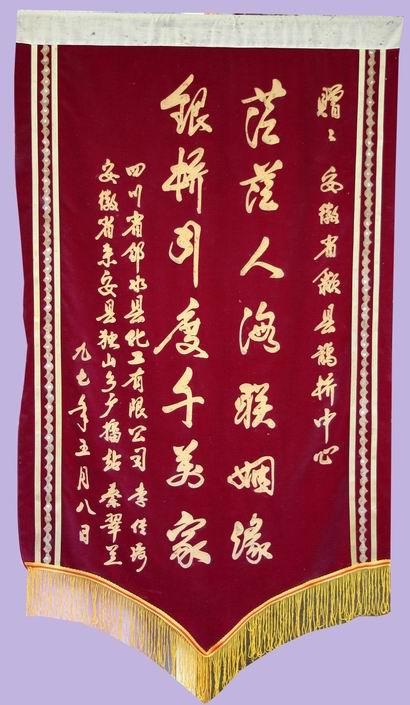 赠：安徽省歙县鹊桥中心
茫茫人海联姻缘
銀桥引度千萬家
四川省邻水县化工有限公司 李
安徽省来安县独山乡广播站 秦翠兰
九七年五月八日